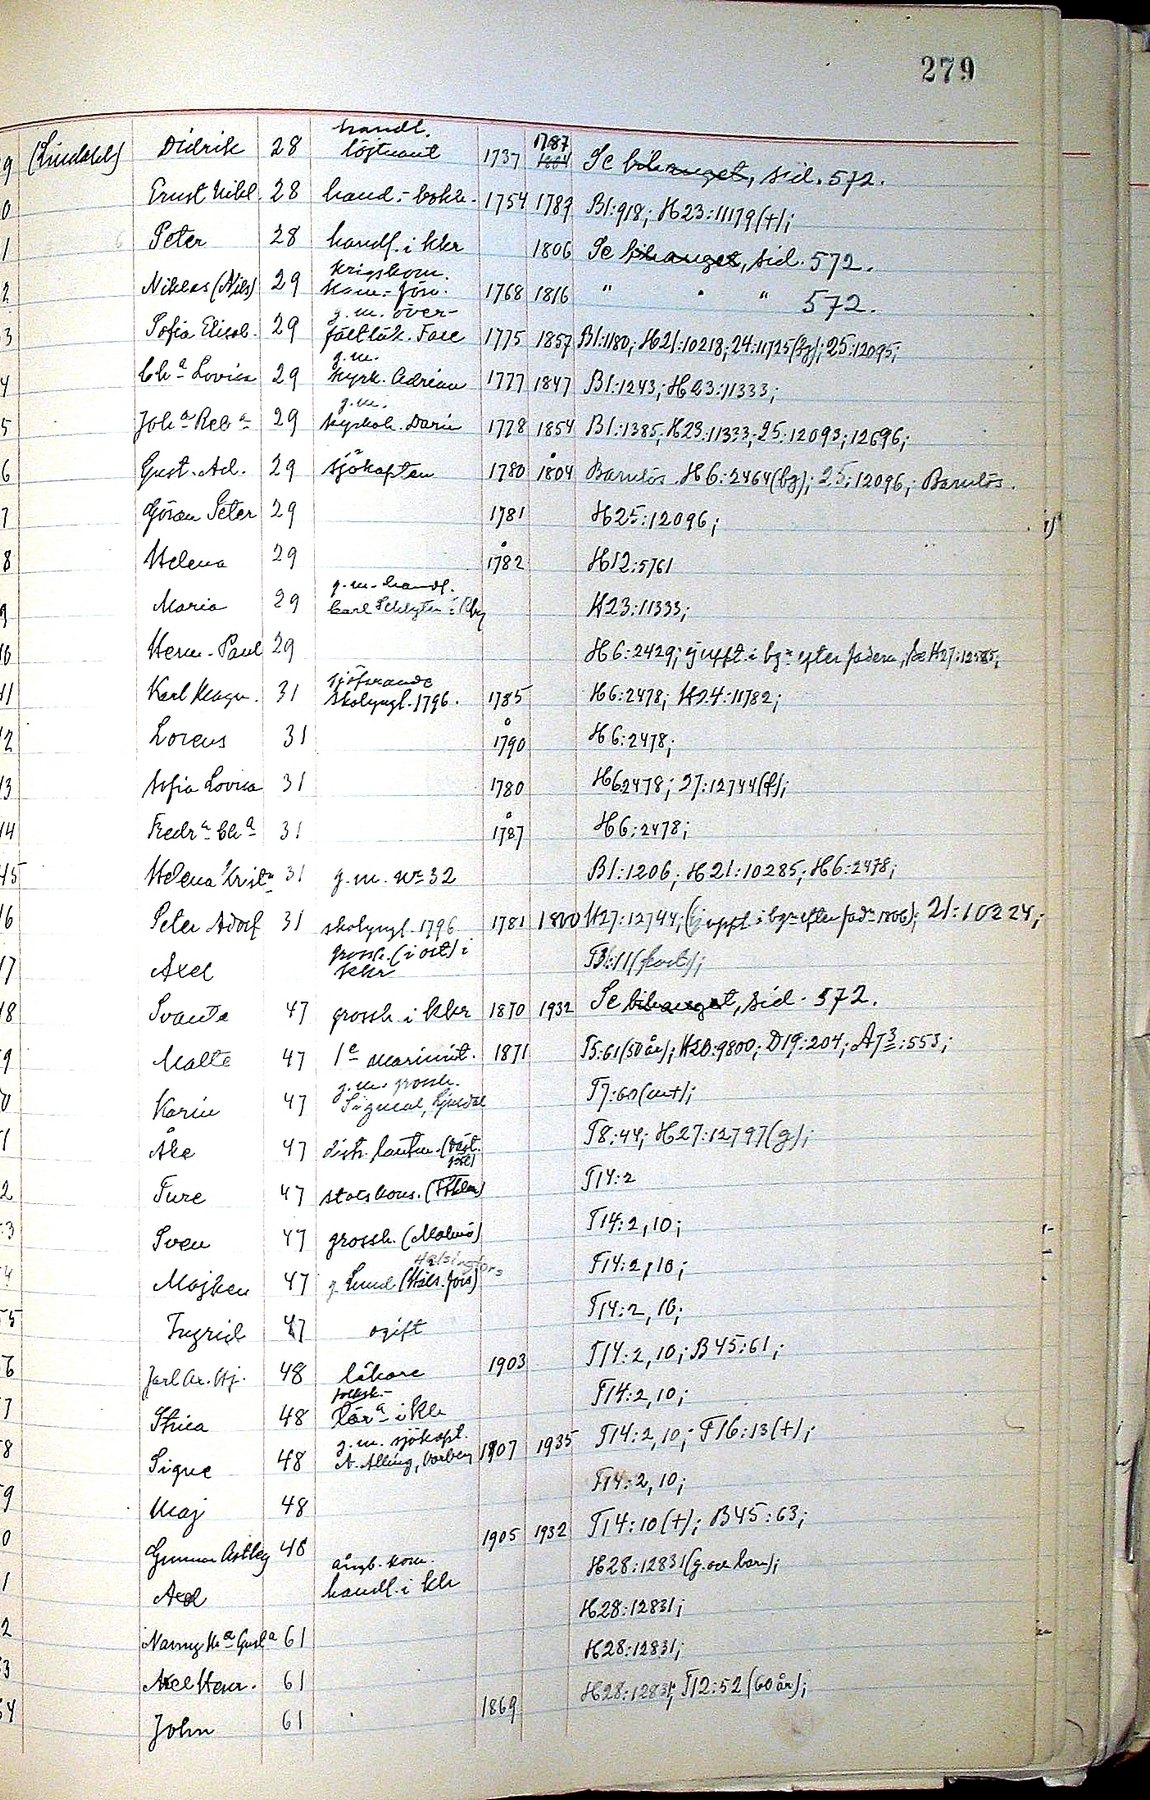 279
9 (Lindahl) Didrik 28 handl. löjtnant 1737 1787 Se bihanget, sid. 572.
0 Ernst Nikl. 28 hand.-bokh. 1754 1789 B1:918; H23:11179(+);
1 Peter 28 handl. i Kkr 1806 Se bihanget, sid. 572.
2 Niklas (Nils) 29 krigskom. kam.-förv. 1768 1816 " " " 572.
3 Sofia Elisab. 29 g.m. över- fältläk. Faxe 1775 1857 B1:1180; H21:10218; 24:11725(g); 25:12095;
4 Ch:a Lovisa 29 g.m. kyrk. Adrian 1777 1847 B1:1243; H23:11333;
5 Joh:a Reb:a 29 g.m. kyrkoh. Darin 1778 1854 B1:1385; H23:11333; 25:12093; 12696;
6 Gust. Ad. 29 sjökapten 1780 1804 Barnlös. H6:2464(bg); 25:12096; Barnlös.
7 Göran Peter 29 1781 H25:12096;
8 Helena 29 1782 H12:5761
9 Maria 29 g.m. handl. Carl Schlyter i Rby H23:11333;
10 Herm. Paul 29 H6:2429; ej uppt. i bg:n efter fadern, se H27:12585;
11 Karl Magn. 31 sjöfarande skolyngl. 1796. 1785 H6:2478; H24:11782;
12 Lorens 31 1790 H6:2478;
13 Sofia Lovisa 31 1780 H62478; 27:12744(f);
14 Fredr:a Ch:a 31 1787 H6:2478;
45 Helena Krist:a 31 g.m. n:r 32 B1:1206; H21:10285; H6:2478;
6 Peter Adolf 31 skolyngl. 1796 1781 1800 H27:12744; (ej uppt. i bg:n efter fad:n 1806); 21:10224;
7 Axel grossh. (i ost) i Kkr T3:11(fort);
8 Svante 47 grossh. i Kkr 1870 1932 Se bihanget, sid. 572.
9 Malte 47 1:e marinint. 1871 T5:61(50 år); H20:9800; D19:204; A73:553;
0 Karin 47 g.m. grossh. T7:60(m+);
1 Åke 47 T8:44; H27:12797(g);
2 Ture 47 T14:2
3 Sven 47 grossh. (Malmö) T14:2,10;
4 Majken 47 g. Lund (Hels.fors) Helsingfors T14:2,10;
55 Ingrid 47 ogift T14:2,10;
6 Jarl Ax. Hj. 48 läkare 1903 T14:2,10; B45:61;
7 Stina 48 folksk.- lär:a i Kkr T14:2,10;
8 Signe 48 g.m. sjökapt. A. Alling, Varberg 1907 1935 T14:2,10; T16:13(+);
9 Maj 48 T14:2,10;
0 Gunnar Astley 48 1905 1932 T14:10(+); B45:63;
1 Axel ångb. kom. handl. i Kkr H28:12831(g. och barn);
2 Nanny M:a Gust:a 61 H28:12831;
3 Axel Henr. 61 H28:12831;
54 John 61 1869 H28:12831; T12:52(60 år);